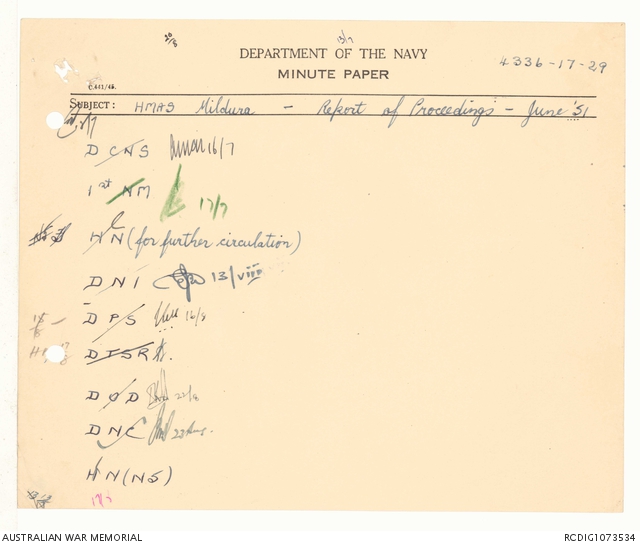 13/7
DEPARTMENT OF THE NAVY
4336-17-29
MINUTE PAPER
C.441/45.
SUBJECT: HMAS Mildura - Report of Proceedings - June '51
DCNS 16/7
1st NM 17/7
HN (for further circulation)
DNI 13/viii
DPS 16/8
DTSR
DOD 22/8
DNC 23 Aug.
HN (NS)
17/7
AUSTRALIAN WAR MEMORIAL
RCDIG1073534